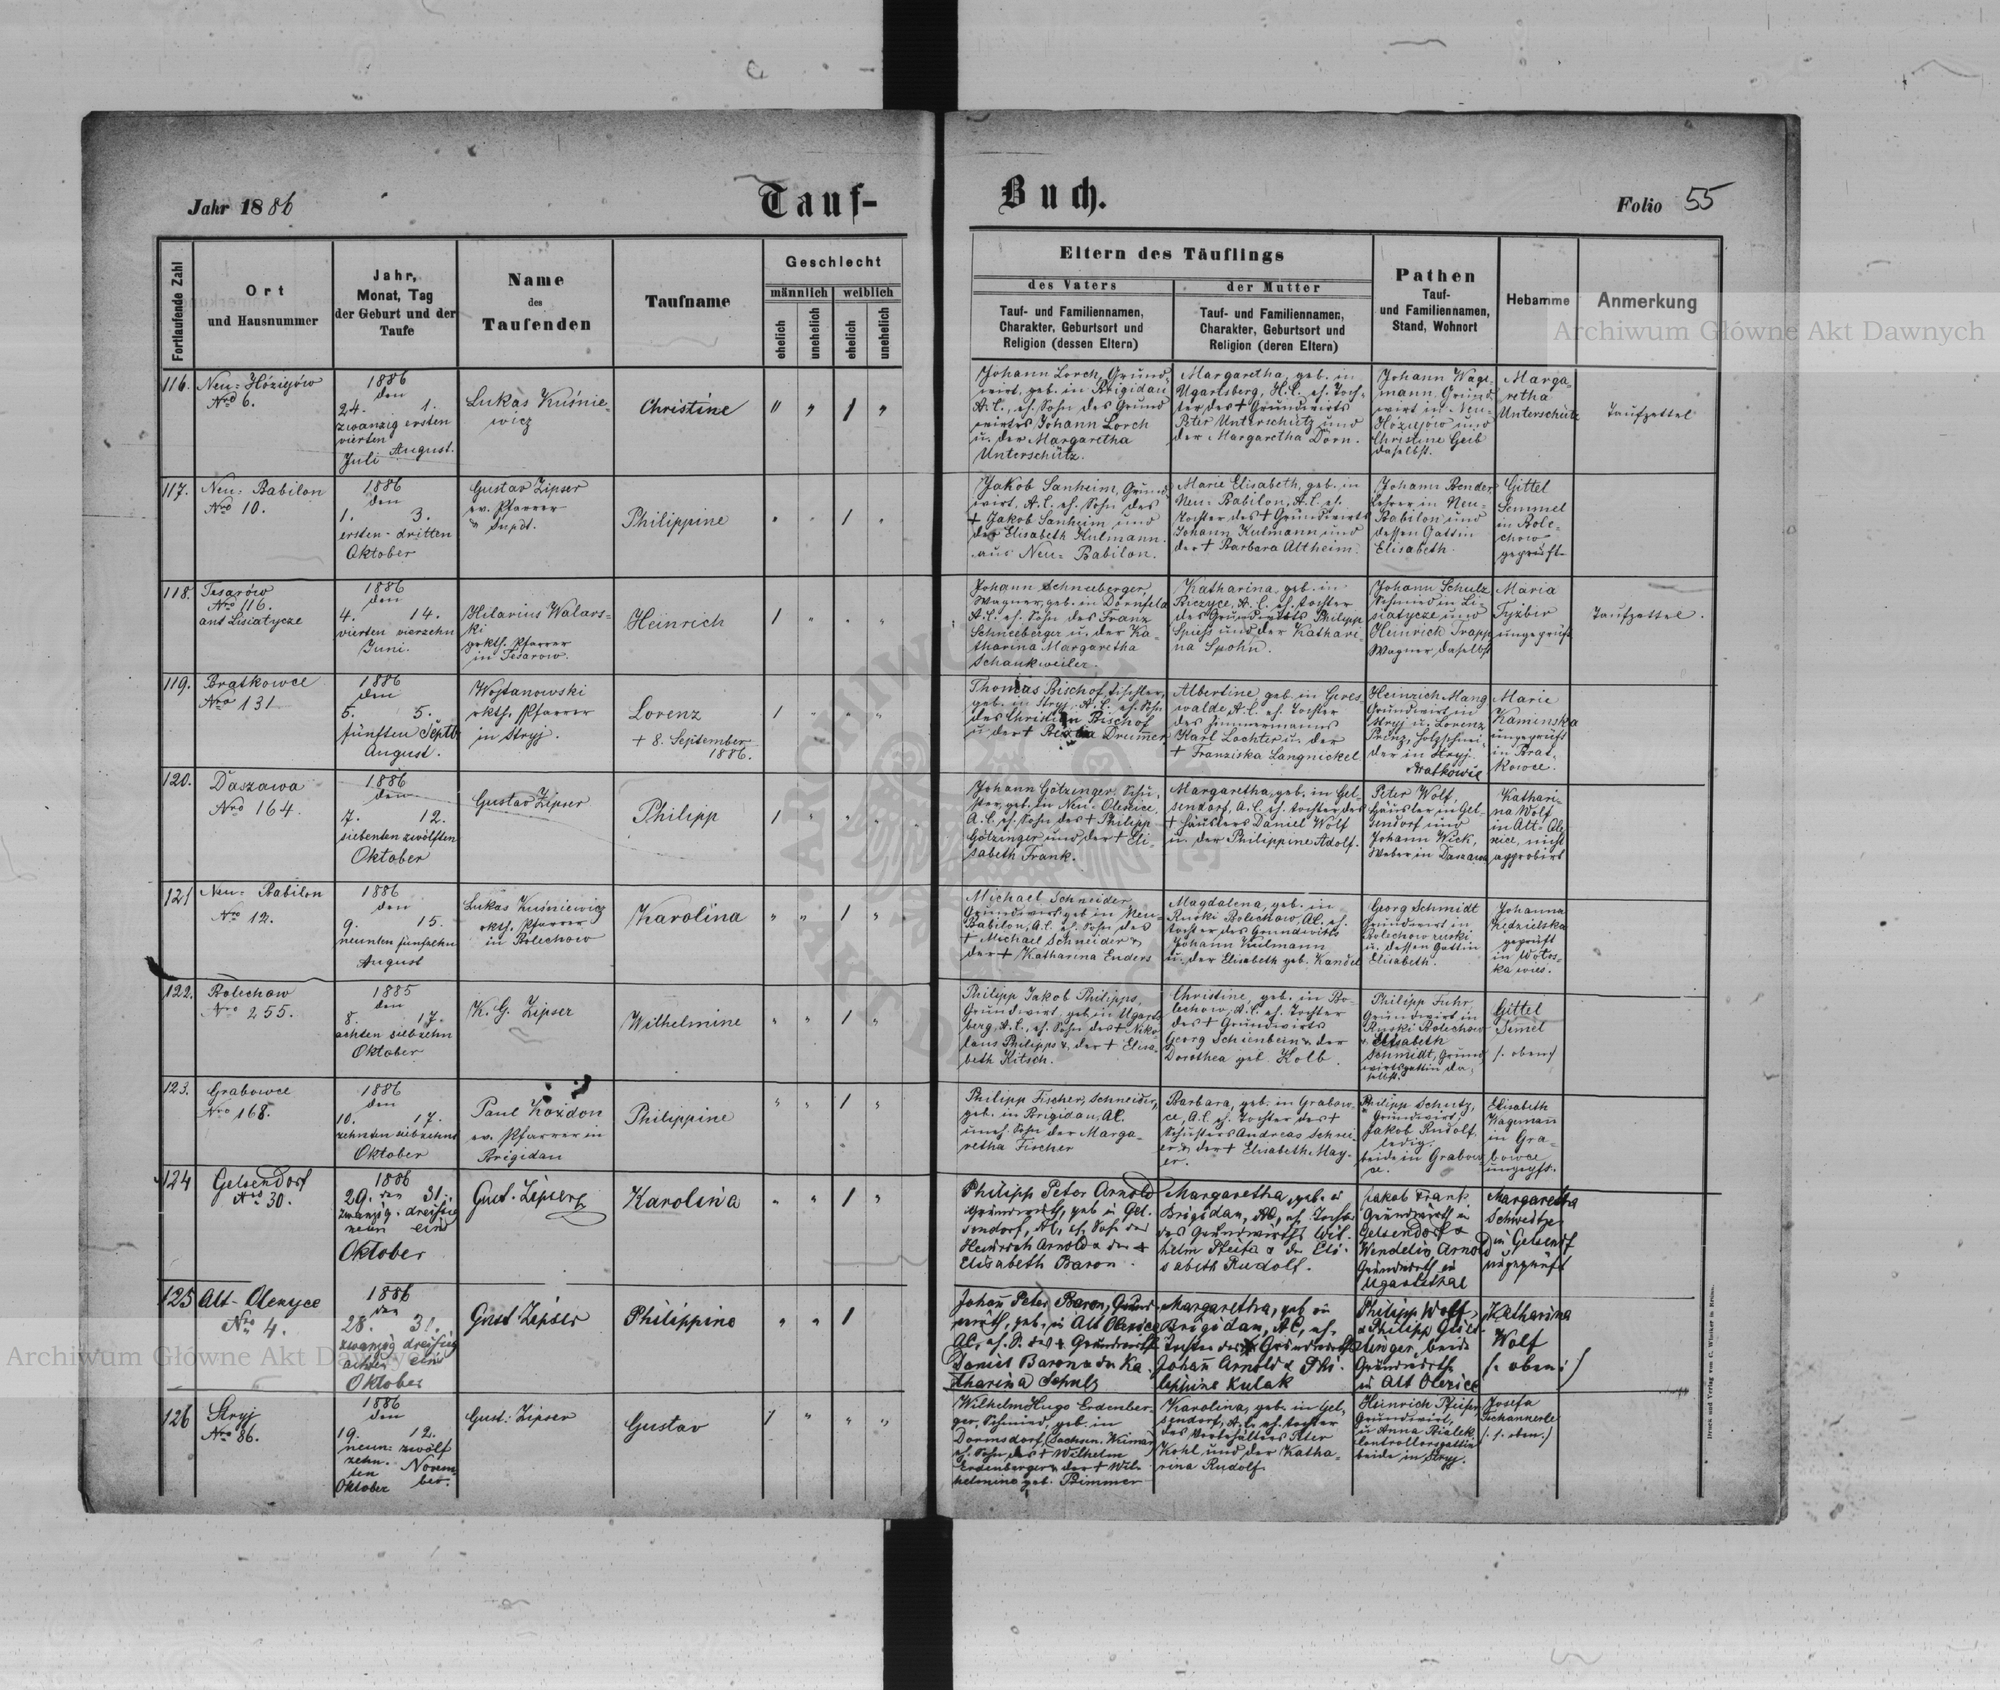 Jahr 1886
Tauf-
Buch.
Folio 55
Fortlaufende Zahl
Ort
und Hausnummer
Jahr,
Monat, Tag
der Geburt und der
Taufe
Name
des
Taufenden
Taufname
Geschlecht
männlich
weiblich
ehelich
unehelich
ehelich
unehelich
Eltern des Täuflings
des Vaters
Tauf- und Familiennamen,
Charakter, Geburtsort und
Religion (dessen Eltern)
der Mutter
Tauf- und Familiennamen,
Charakter, Geburtsort und
Religion (deren Eltern)
Pathen
Tauf-
und Familiennamen,
Stand, Wohnort
Hebamme
Anmerkung
Archiwum Główne Akt Dawnych
116.
Neu-Hózijów
Nro 6.
1886
den
24. 1.
zwanzig ersten
vierten
Juli August.
Lukas Kuśnie-
wicz
Christine
" " 1 "
Johann Lorch, Grund-
wirt, geb. in Brigidau
A. C., eh. Sohn des Grund
wirtes Johann Lorch
u. der Margaretha
Unterschütz.
Margaretha, geb. in
Ugartsberg, H. C. eh. Toch-
ter des + Grundwirts
Peter Unterschütz und
der Margaretha Dorn.
Johann Wage-
mann Grund
wirt in Neu-
Hózijów und
Christine Geib
daselbst.
Marga-
retha
Unterschütz
Taufzettel
117.
Neu-Babilon
Nro 10.
1886
den
1. 3.
ersten-dritten
Oktober
Gustav Zipser
ev. Pfarrer
u Supdt.
Philippine
" " 1 "
Jakob Sanheim, Grund
wirt, A. C. eh. Sohn des
+ Jakob Sanheim und
der Elisabeth Kulmann
aus Neu-Babilon.
Marie Elisabeth, geb. in
Neu-Babilon, A. C. eh.
Tochter des + Grundwirts
Johann Kulmann und
der + Barbara Altheim.
Johann Bender
Lehrer in Neu-
Babilon und
dessen Gattin
Elisabeth.
Gittel
Semmel
in Bole-
chow
geprüft
118.
Tesarów
Nro 116.
aus Lisiatycze
1886
den
4. 14.
vierten vierzehn
Juni.
Hilarius Walars-
ki
grkth. Pfarrer
in Tesarow.
Heinrich
1 " " "
Johann Schneeberger,
Wagner, geb. in Dornfeld
A. C. eh. Sohn des Franz
Schneeberger u. der Ka-
tharina Margaretha
Schankweiler.
Katharina, geb. in
Biczyce, A. C. eh. Tochter
des Grundwirts Philipp
Spiess und der Kathari-
na Spohn.
Johann Schulz
Schmied in Li-
siatycze und
Heinrich Trapp
Wagner daselbst
Maria
Fyzbir
ungeprüft
Taufzettel.
119.
Bratkowce
Nro 131
1886
den
5. 5.
fünften Septb.
August.
Wojtanowski
rkth. Pfarrer
in Stryj.
Lorenz
+ 8. September
1886.
1 " " "
Thomas Bischof, Tischler,
geb. in Stryj, A. C. eh. Sohn
des Christian Bischof
u. der + Drummer
Albertine geb. in Geres-
walde A. C. eh. Tochter
des Zimmermanns
Karl Lochte u. der
+ Franziska Langnickel
Heinrich Mang
Grundwirt in
Stryj u. Lorenz
Prinz, Holzschnei-
der in Stryj.
Bratkowie
Marie
Kaminska
ungeprüft
in Brat-
kowce.
120.
Daszawa
Nro 164.
1886
den
7. 12.
siebenten zwölften
Oktober
Gustav Zipser
Philipp
1 " " "
Johann Götzinger, Schu-
ster, geb. in Neu-Olexice,
A. C. eh. Sohn des + Philipp
Götzinger und der + Eli-
sabeth Frank.
Margaretha, geb. in Gel-
sendorf, A. C. eh. Tochter des
+ Häuslers Daniel Wolf
u. der Philippine Adolf.
Peter Wolf,
Häusler in Gel-
sendorf und
Johann Wick,
Weber in Daszawa
Kathari-
na Wolf
in Alt-Ole-
xice, nicht
approbirt
121
Neu-Babilon
Nro 12.
1886
den
9. 15.
neunten fünfzehn
August
Lukas Kuśniewicz
rkth. Pfarrer
in Bolechow
Karolina
" " 1 "
Michael Schneider
Grundwirt geb in Neu-
Babilon, A. C. eh. Sohn des
+ Michael Schneider u
der + Katharina Enders
Magdalena, geb. in
Ruski Bolechow, A.C. eh.
Tochter des Grundwirts
Johann Kulmann
u. der Elisabeth geb. Kandel
Georg Schmidt
Grundwirt in
Bolechow ruski
u. dessen Gattin
Elisabeth.
Johanna
Kędzielska
geprüft
in Wolos-
ka wies.
122.
Bolechow
Nro 255.
1885
den
8. 17.
achten siebzehn
Oktober
K. G. Zipser
Wilhelmine
" " 1 "
Philipp Jakob Philipps,
Grundwirt, geb. in Ugarts
berg, A. C., eh. Sohn des + Niko
laus Philipps u. der + Elisa-
beth Kitsch.
Christine, geb. in Bo-
lechow, A. C. eh. Tochter
des + Grundwirts
Georg Schienbein u. der
Dorothea geb. Kolb.
Philipp Fuhr,
Grundwirt in
Ruski Bolechow
u. Elisabeth
Schmidt, Grund
wirtsgattin da-
selbst.
Gittel
Semmel
/: oben:/
123.
Grabowce
Nro 168.
1886
den
10. 17.
zehnten siebzehnt
Oktober
Paul Kozdon
ev. Pfarrer in
Brigidau
Philippine
" " 1 "
Philipp Fischer, Schneider,
geb. in Brigidau, A.C.
uneh. Sohn der Marga-
retha Fischer
Barbara, geb. in Grabow-
ce, A. C. eh. Tochter des +
Schusters Andreas Schrei-
er u der + Elisabeth May-
er.
Philipp Schutz,
Grundwirt,
Jakob Rudolf,
ledig,
beide in Grabow
ce.
Elisabeth
Wagemann
in Gra-
bowce
ungepft.
124
Gelsendorf
Nro 30.
1886
29. den 31.
zwanzig- dreissig
neun eind
Oktober
Gust. Zipser
Karolina
" " 1 "
Philipp Peter Arnold
Grundwirth, geb in Gel-
sendorf, AC, eh. Sohn des
Heinrich Arnold u der +
Elisabeth Baron.
Margaretha, geb. in
Brigidau, AC, eh. Tochter
des Grundwirths Wil-
helm Pfeifa u der Eli-
sabeth Rudolf.
Jakob Frank
Grundwirth in
Gelsendorf u
Wendelin Arnold
Grundwirth in
Ugartsthal
Margaretha
Schweitze
in Gelsendf
ungeprüft
125
Alt-Olexyce
Nro 4.
1886
den
28. 31.
zwanzig dreissig
achten eind
Oktober
Gust Zipser
Philippine
" " 1
Johann Peter Baron, Grund
wirth, geb. in Alt Olexice
AC, eh. S. des + Grundwirth
Daniel Baron u der Ka-
tharina Schulz
Margaretha, geb in
Brigidau, AC, eh.
Tochter des Grundwirth
Johann Arnold u Phi-
lippine Kulak
Philipp Wolf,
u Philipp Götz-
linger, beide
Grundwirthe
in Alt Olexice
Katharina
Wolf
/: oben:/
126
Stryj
Nro 86.
1886
den
19. 12.
neun- zwölf
zehn-
ten Novem-
Oktober ber.
Gust. Zipser
Gustav
1 " " "
Wilhelm Hugo Erdenber-
ger, Schmied, geb. in
Dormsdorf, Sachsen,
eh. Sohn des + Wilhelm
Erdenberger u der + Wil-
helmine geb. Bimmer
Karolina, geb. in Gel-
sendorf, A. C. eh. Tochter
des Peter
Kohl und der Katha-
rina Rudolf.
Heinrich Pfeifer
Grundwirt,
u Anna Bialek
Controllorsgattin
beide in Stryj.
Josefa
Tschannerle
/: s. oben:/
Archiwum Główne Akt Dawnych